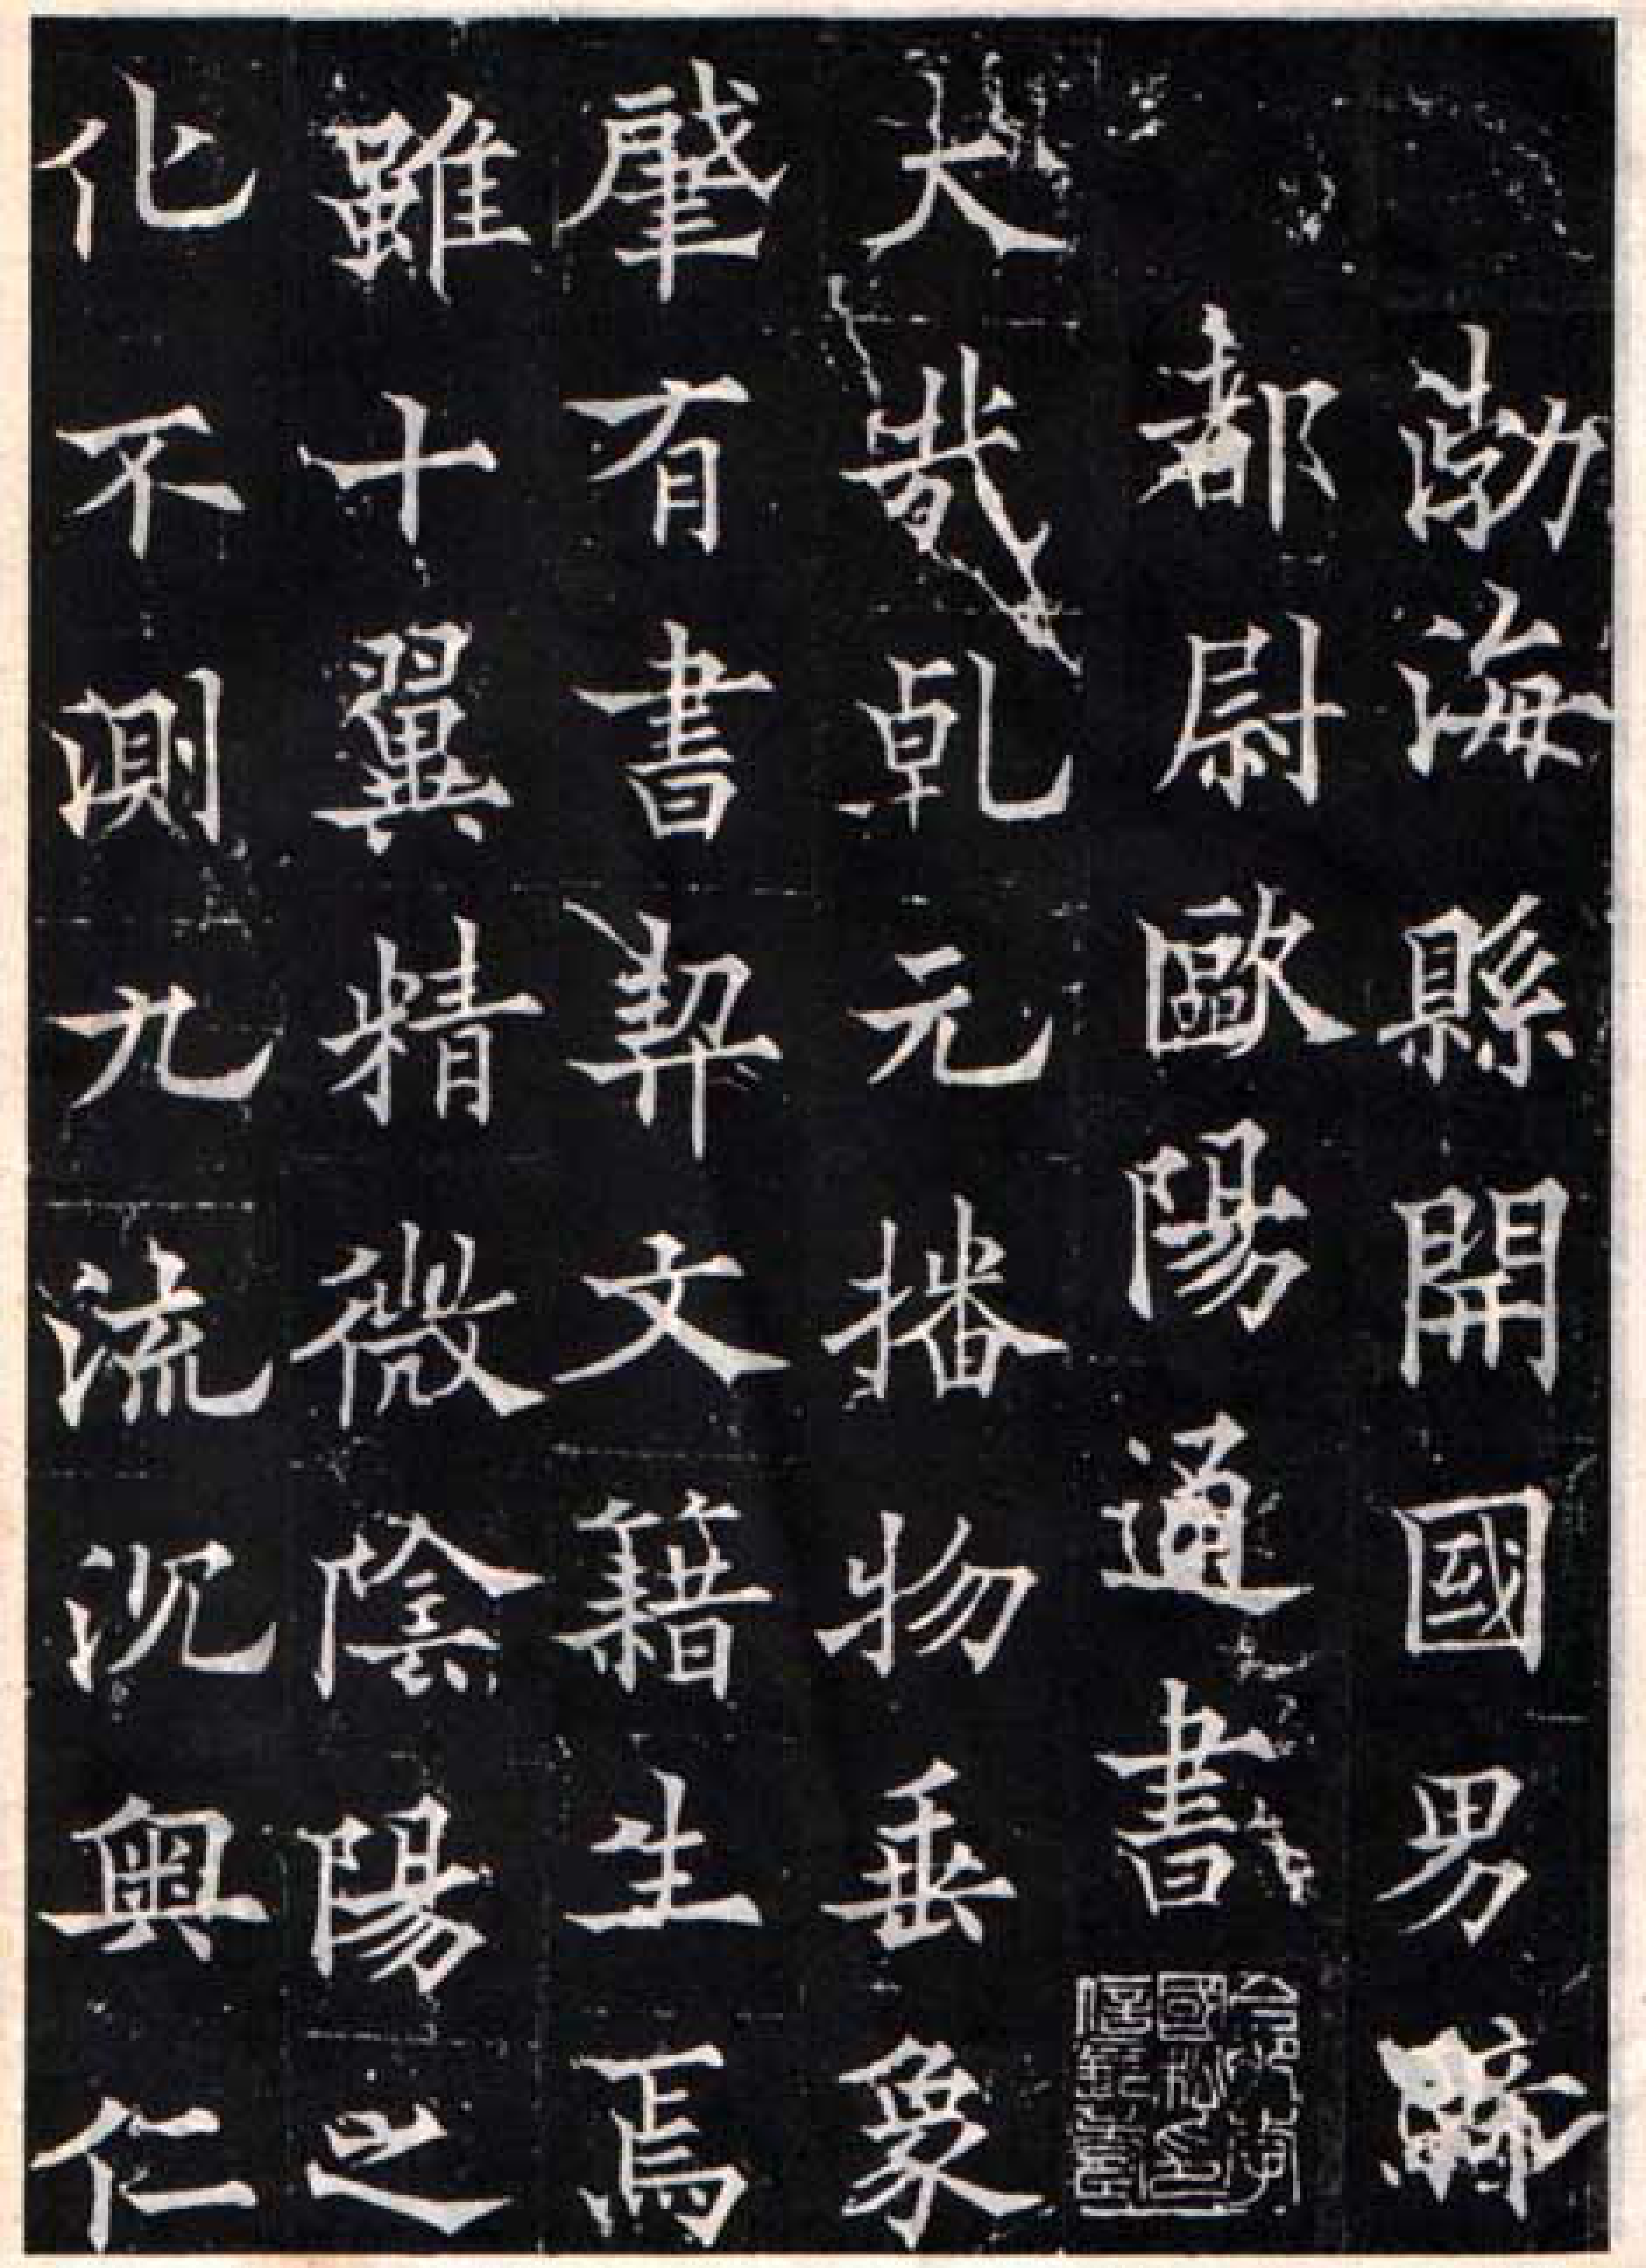 渤海縣開國男騎
都尉歐陽通書
大哉乹元播物垂象
肈有書契文籍生焉
雖十翼精微陰陽之
化不測九流沉奥仁